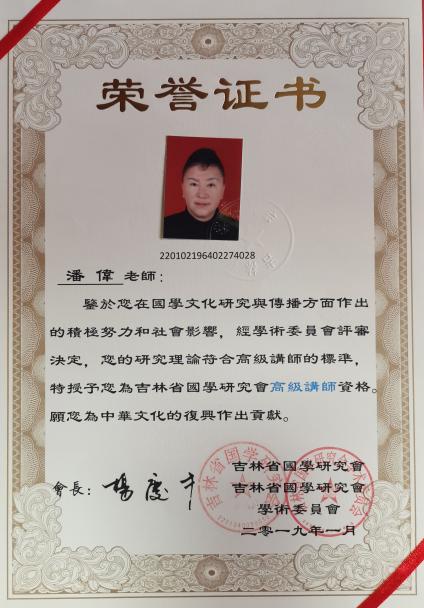 荣誉证书
220102196402274028
潘偉老師：
鑒於您在國學文化研究與傳播方面作出
的積極努力和社會影響，經學術委員會評審
決定，您的研究理論符合高級講師的標準，
特授予您為吉林省國學研究會高級講師資格。
願您為中華文化的復興作出貢獻。
吉林省國學研究會
會長：楊慶
吉林省國學研究會
學術委員會
二零一九年一月
吉林省国学研究会